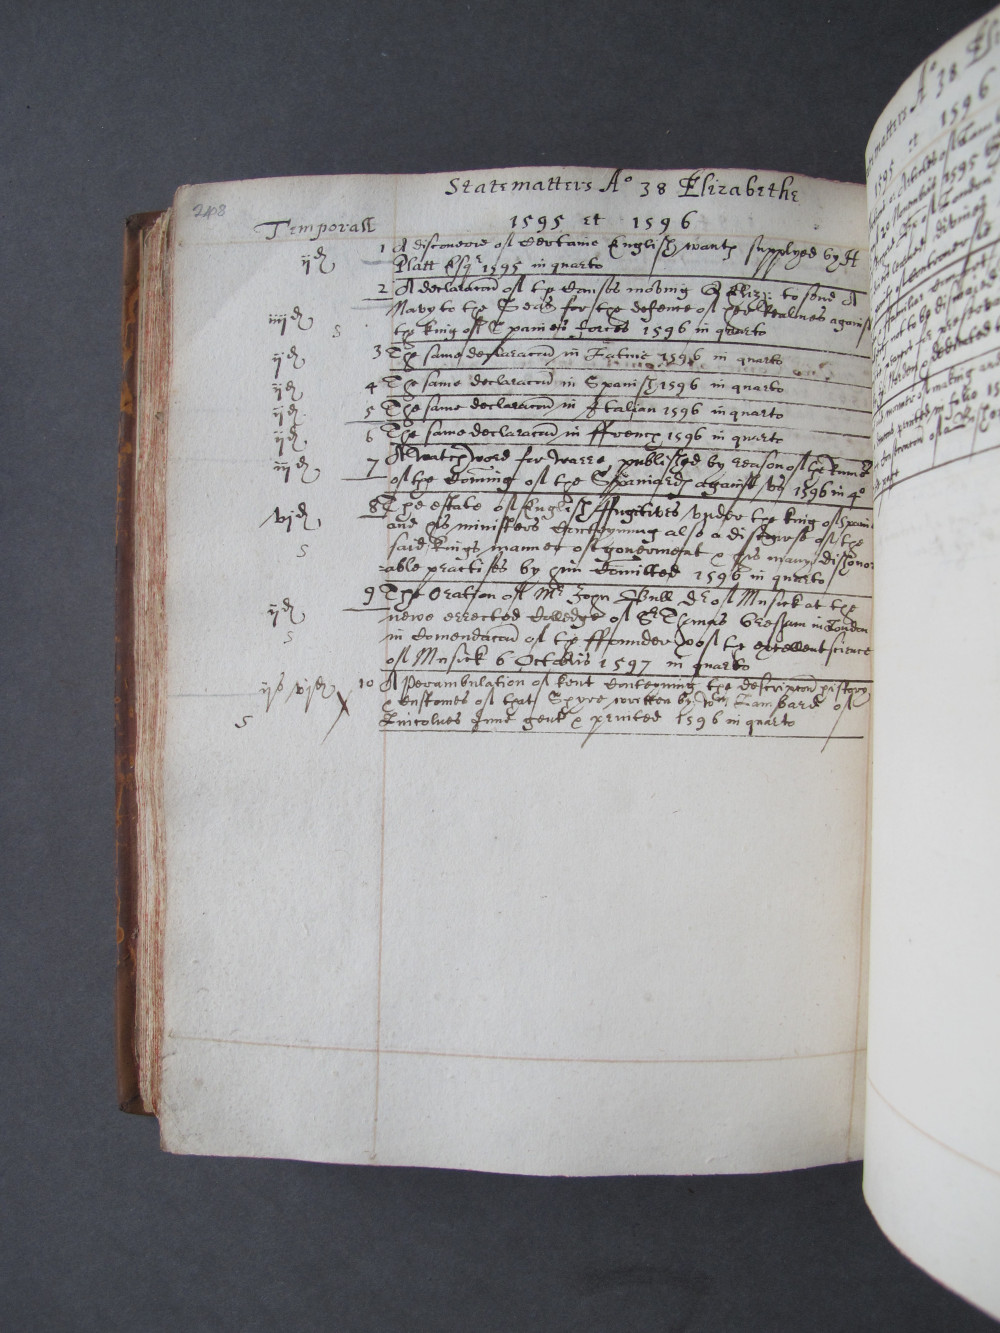 Statematters Ao 38 Elizabethe
248
Temporall
1595 et 1596
ijd
1 A discouerie of Certaine English wants supplyed by H
Platt Esqr 1595 in quarto
2 A declaracon of the causes moving Q Eliz: to send A
iiijd
Navy to the Seas for the defence of her Realmes against
S
the king of Spaines forces 1596 in quarto
ijd
3 The same declaracon in Latine 1596 in quarto
ijd
4 The same declaracon in Spanish 1596 in quarto
ijd
5 The same declaracon in Italian 1596 in quarto
ijd
6 The same declaracon in ffrench 1596 in quarto
iijd
7 A watch word for warre published by reason of the
of the Coming of the Spaniards against vs 1596 in 4o
vjd
8 The estate of English ffugitives vnder the king of Spaine
S
and his ministers Conteyning also a discourse of the
said kings manner of gouerment & his many dishonor
able practises by him Comitted 1596 in quarto
9 The Oration of Mr John Bull Dr of Musick at the
ijd
newe errected Colledge of Sr Thomas Gressam in London
S
in Comendacon of the ffounder & of the excellent science
of Musick 6 Octobris 1597 in quarto
ijs vjd
10 A Perambulation of kent Conteyning the descripcon history
& Customes of that Shyre written by Wm Lambard of
S
Lincolnes Inne gent & printed 1596 in quarto